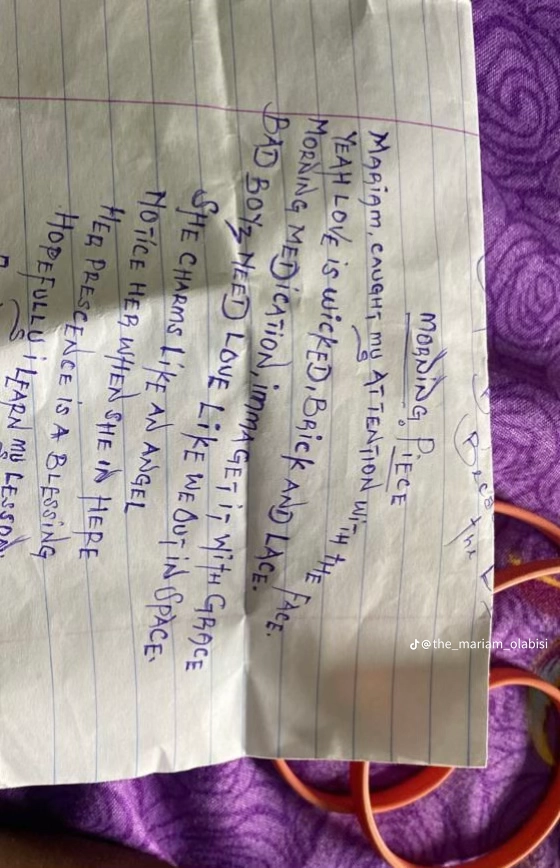 MORNING PIECE
MARIAM, CAUGHT MY ATTENTION WITH THE FACE.
YEAH LOVE IS WICKED, BRICK AND LACE.
MORNING MEDICATION, IMMAGE IT WITH GRACE
BAD BOYZ NEED LOVE LIKE WE OUT IN SPACE.
SHE CHARMS LIKE AN ANGEL
NOTICE HER WHEN SHE IN HERE
HER PRESCENCE IS A BLESSING
HOPEFULLY I LEARN MY LESSON.
@the_mariam_olabisi